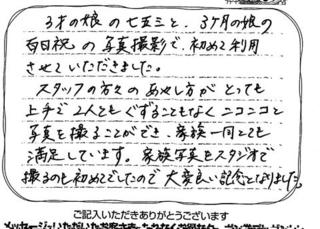 3才の娘の七五三と、3ケ月の娘の
百日祝の写真撮影で、初めて利用
させていただきました。
スタッフの方々のあやし方がとっても
上手で2人ともぐずることもなくニコニコと
写真を撮ることができ、家族一同とても
満足しています。家族写真をスタジオで
撮るのも初めてでしたので大変良い記念となりました。
ご記入いただきありがとうございます